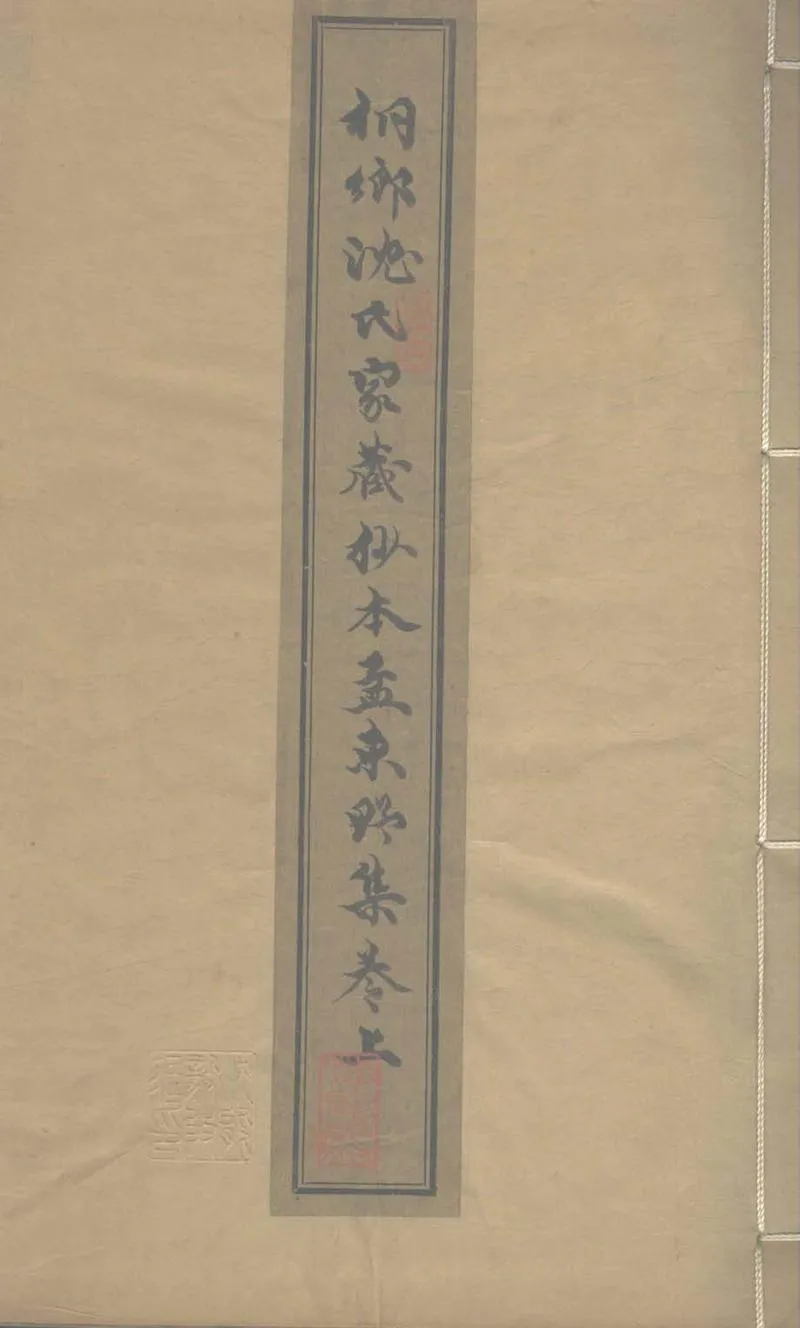 桐鄉沈氏家藏抄本孟東野集卷上